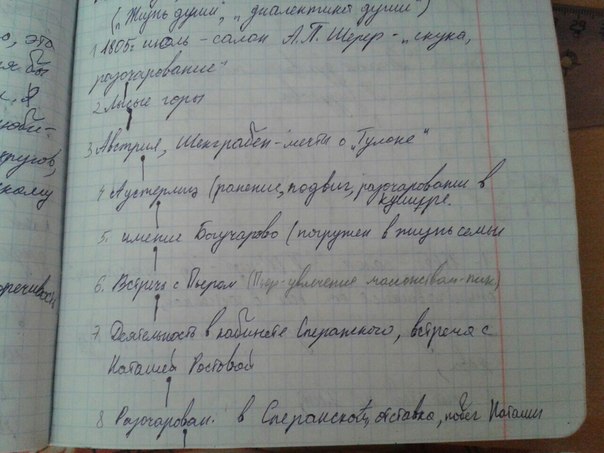 („Жизнь души", „диалектика души")
1. 1805г. июль - салон А.П. Шерер - „скука,
разочарование"
2. Лысые горы
3. Австрия, Шенграбен - мечты о „Тулоне"
4. Аустерлиц (ранение, подвиг, разочарование в
кумире
5. имение Богучарово (погружен в жизнь семьи
6. Встреча с Пьером (Пьер-увлечение масонством
7. Деятельность в кабинете Сперанского, встреча с
Наташей Ростовой
8 Разочарован. в Сперанском, отставка, побег Наташи
о, это
бы
люби-
кругов,
скому